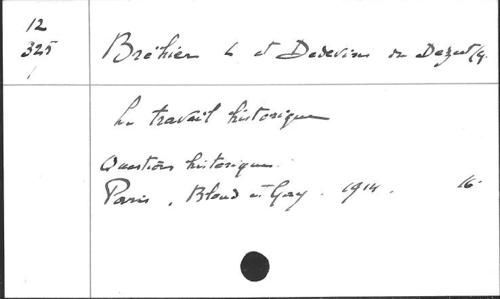 12
325
Bréhier L et Dedevises du Dezert G.
Le travail historique
Questions historiques.
Paris, Bloud et Gay. 1914. 16.